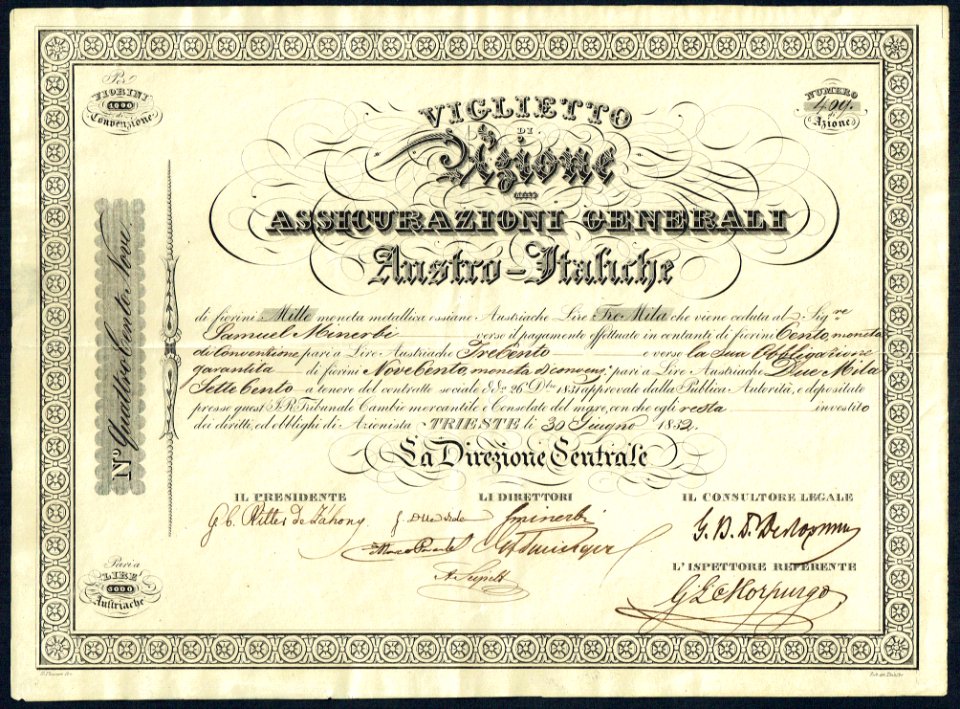 Per
FIORINI
1000
di
Convenzione
NUMERO
409.
di
Azione
VIGLIETTO
DI
Azione
DELLE
ASSICURAZIONI GENERALI
Austro-Italiche
di fiorini Mille moneta metallica ossiano Austriache Lire Tre Mila che viene ceduta al Sigre
Samuel Minerbi verso il pagamento effettuato in contanti di fiorini Cento, moneta
di Convenzione pari a Lire Austriache Trecento e verso la Sua Obbligazione
garantita di fiorini Novecento, moneta di conven: pari a Lire Austriache Due Mila
Sette Cento a tenore del contratto sociale dd. 26 Dbre 1831 approvato dalla Publica Autorità, e depositato
presso quest' I.R. Tribunale Cambio mercantile e Consolato del mare, con che egli resta investito
dei diritti, ed obblighi di Azionista. TRIESTE li 30 Giugno 1832.
La Direzione Centrale
No Quattro Cento Nove
IL PRESIDENTE
LI DIRETTORI
IL CONSULTORE LEGALE
G. C. Ritter de Záhony
Minerbi
Marco Parente
L'ISPETTORE REFERENTE
Morpurgo
Pari a
LIRE
3000
Austriache